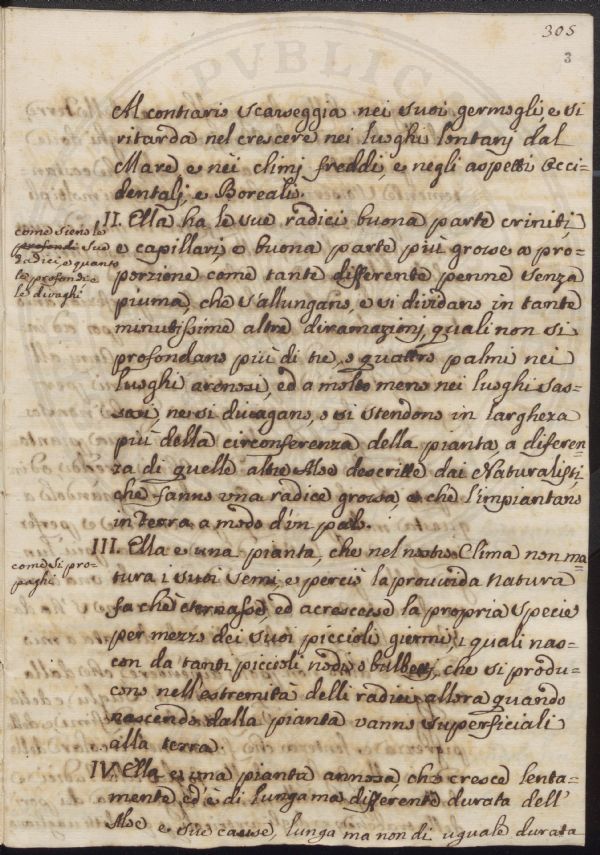 305
3
PVBLIC
Al contrario scarseggia nei suoi germogli e si
ritarda nel crescere nei luoghi lontanj dal
Mare e nei climj freddi e negli aspetti Occi=
dentalj e Boreali.
II. Ella ha le sue radici buona parte criniti,
e capillari e buona parte più grosse a pro=
porzione come tante differente penne senza
piuma, che s'allungano, e si dividano in tante
minutissime altre diramazionj, quali non si
profondano più di tre, o quattro palmi nei
luoghi arenosi, ed a molto meno nei luoghi sas=
sosi, ne si divagano, o si stendono in largheza
più della circonferenza della pianta, a diferen=
za di quelle altre Aloe descritte dai Naturalisti
che fanno una radice grossa, e che l'impiantano
in Terra a modo d'un palo.
come sieno le
profondi sue
radici e quanto
le profondi e
le divaghi
III. Ella e una pianta, che nel nostro Clima non ma=
tura i suoi semi, e perciò la provvida natura
fa che eternasse, ed acrescesse la propria specie
per mezzo dei suoi piccioli giermi, i quali nas=
con da tanti piccioli nodi, o bulbettj, che si produ=
cono nell'estremità delli radici allora quando
nascendo dalla pianta vanno superficiali
alla terra.
come si pro=
paghi
IV. Ella e una pianta annosa, che cresce lenta=
mente, ed è di lunga ma differente durata dell'
Aloe e sue cause, lunga ma non di uguale durata